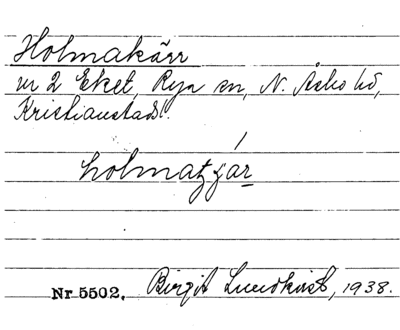 Holmakärr
nr 2 Eket, Rya sn, N. Åsbo hd,
Kristianstads l.
Nr 5502. Birgit Lundkvist, 1938.